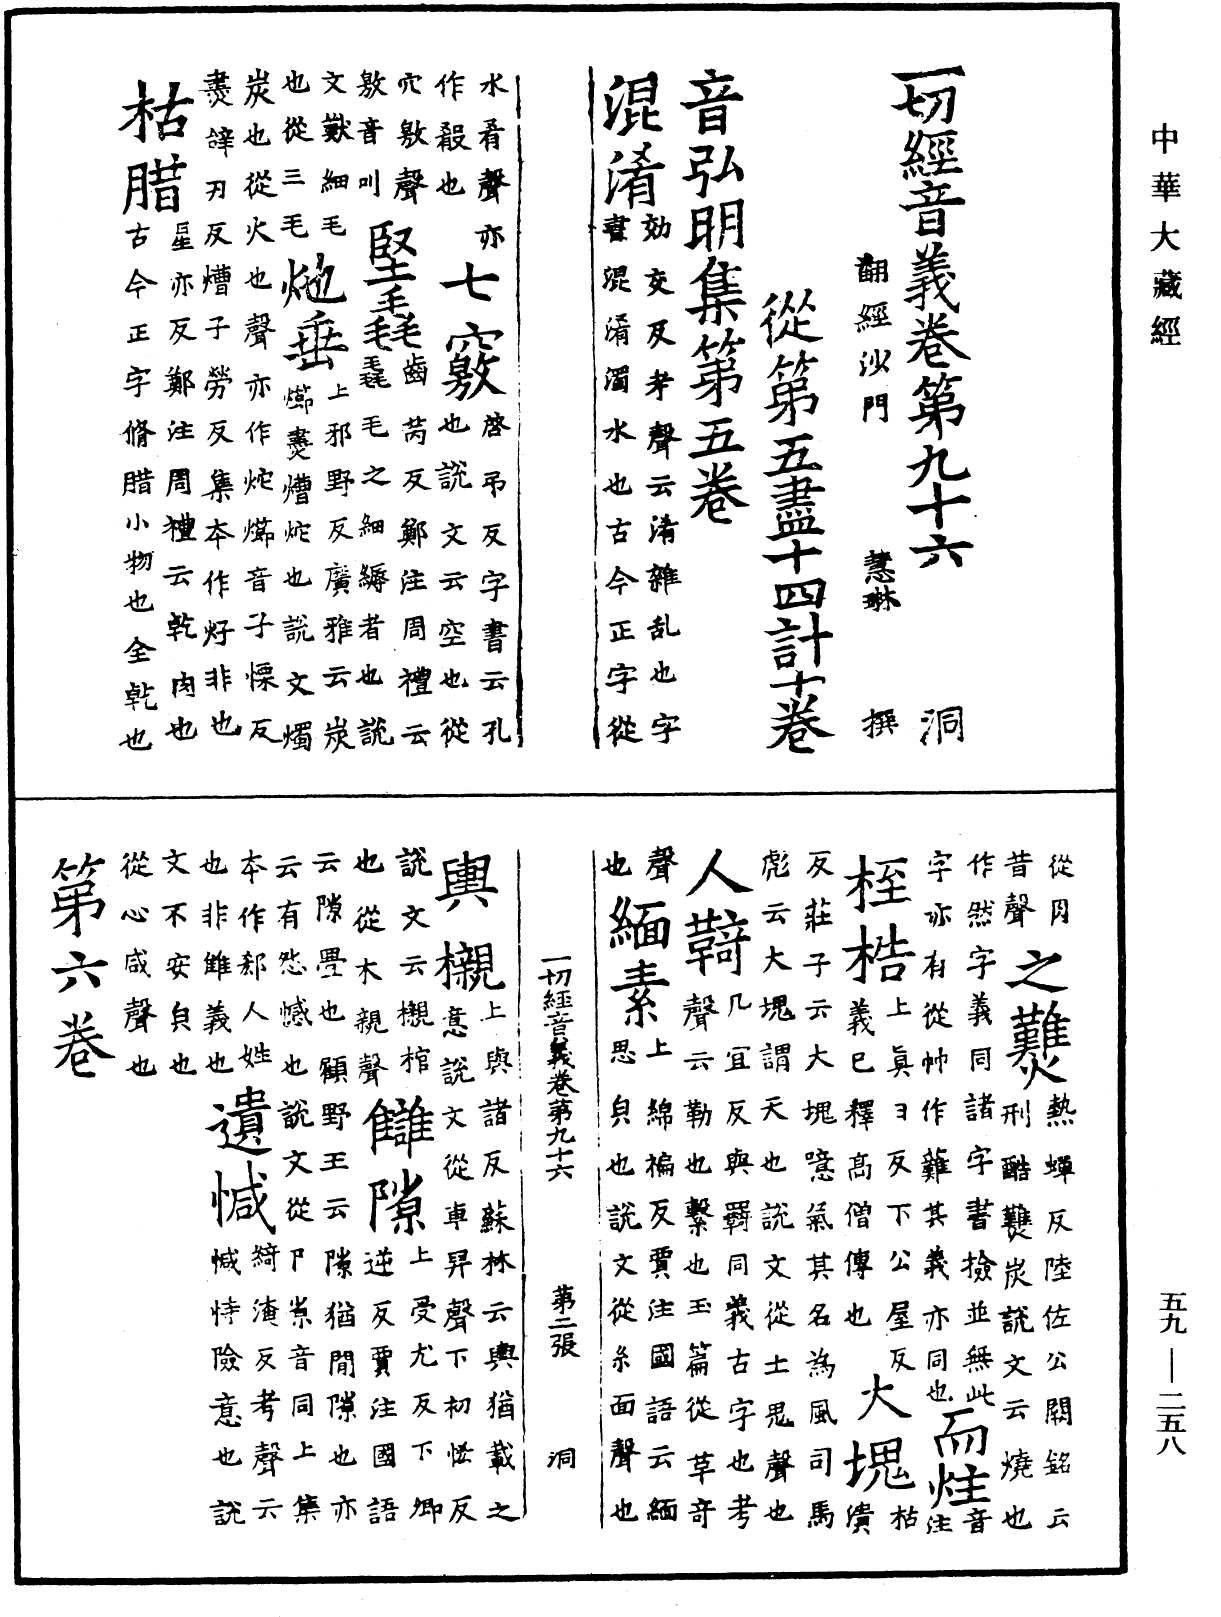 中華大藏經
一切經音義卷第九十六 洞
翻經沙門 慧琳 撰
從第五盡十四計十卷
音弘明集第五卷
混淆
効交反考聲云淆雜乱也字
書混淆濁水也古今正字從
水肴聲亦
作殽也
七竅
啓吊反字書云孔
也說文云空也從
穴敫聲
敫音叫
堅毳
齒芮反鄭注周禮云
毳毛之細縟者也說
文獸細毛
也從三毛
炧垂
上邪野反廣雅云炭
㸅㶳熷炨也說文燭
炭也從火也聲亦作炨㸅音子慄反
㶳辝刃反熷子勞反集本作好非也
枯腊
星亦反鄭注周禮云乾肉也
古今正字脩腊小物也全乾也
從月
昔聲
之難
熱蟬反陸佐公闕銘云
刑酷難炭說文云燒也
作然字義同諸字書撿並無此
字亦有從艸作難其義亦同也
而炷
音
注
桎梏
上真日反下公屋反
義已釋高僧傳也
大塊
枯
潰
反莊子云大塊噫氣其名為風司馬
彪云大塊謂天也說文從土鬼聲也
人䩭
几宜反與羇同義古字也考
聲云勒也繫也玉篇從革奇
聲
也
緬素
上綿褊反賈注國語云緬
思皃也說文從糸面聲也
一切經音義卷第九十六 第二張 洞
輿櫬
上與諸反蘇林云輿猶載之
意說文從車舁聲下初恡反
說文云櫬棺
也從木親聲
讎隙
上受尤反下卿
逆反賈注國語
云隙舋也顧野王云隙猶間隙也亦
云有怨憾也說文從阝𡭴音同上集
本作郄人姓
也非雠義也
遺憾
綺淹反考聲云
憾恃險意也說
文不安皃也
從心咸聲也
第六卷
五九—二五八